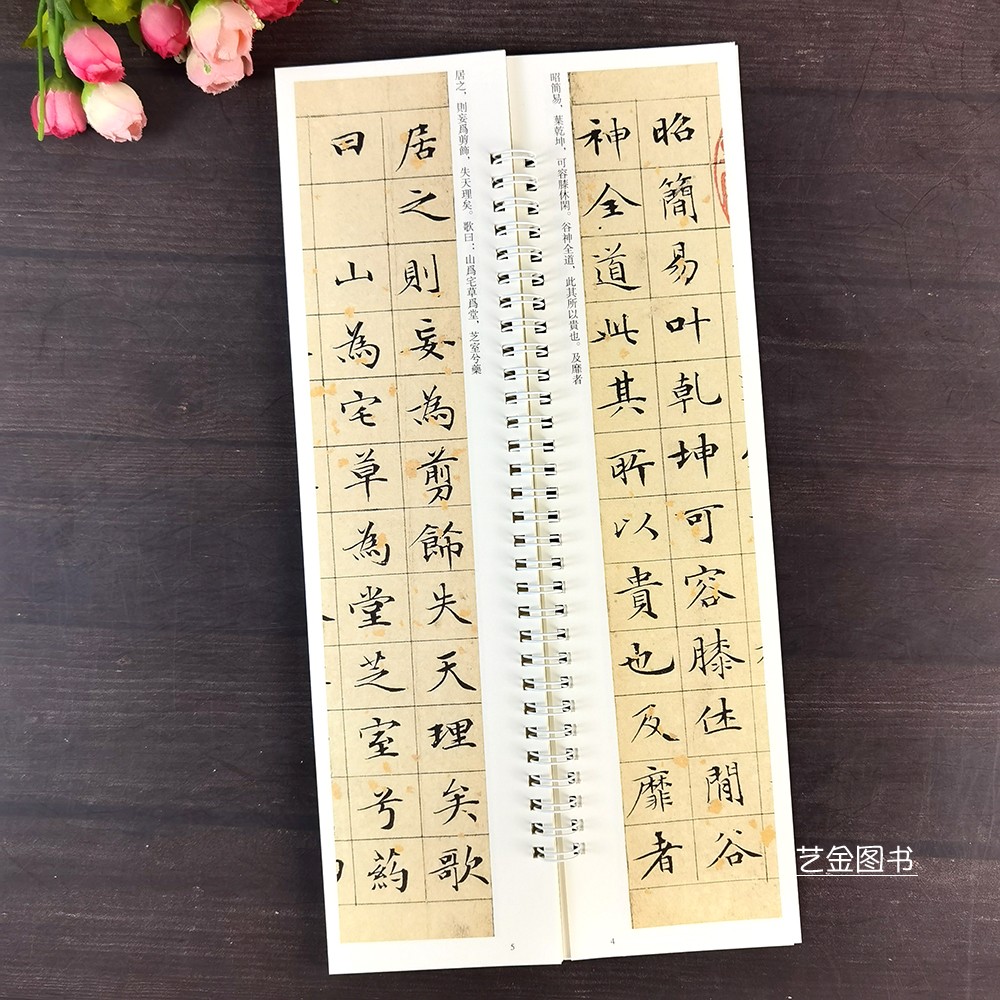 昭簡易叶乾坤可容膝休閒谷
神全道此其所以貴也及靡者
昭簡易，葉乾坤，可容膝休閑。谷神全道，此其所以貴也。及靡者
4
居之，則妄爲剪飾，失天理矣。歌曰：山爲宅草爲堂，芝室兮藥
居之則妄為剪飾失天理矣歌
曰 山為宅草為堂芝室兮葯
5
艺金图书